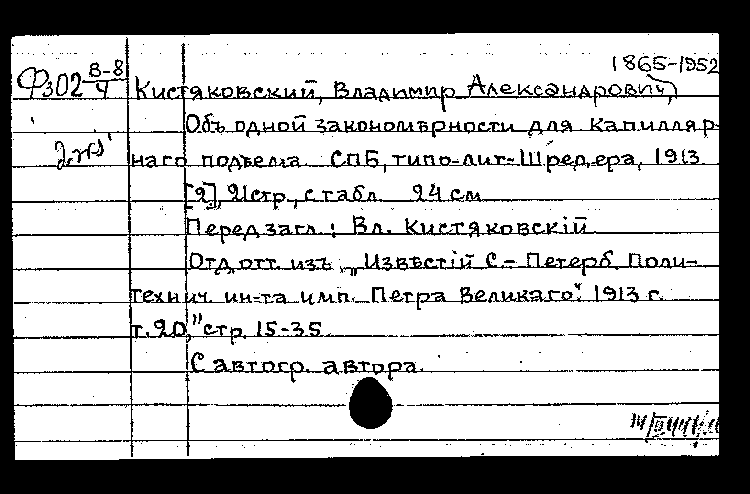 1865-1952
Ф302 В-8/4 Кистяковский, Владимир Александрович,
Объ одной закономѣрности для капилляр-
наго подъема. СПБ, типо-лит. Шредера, 1913.
[2], 21стр., с табл. 24 см
Перед загл.: Вл. Кистяковскій
Отд. отт. изъ „Извѣстій С.-Петерб. Поли-
технич. ин-та имп. Петра Великаго". 1913 г.
т. 20, стр. 15-35
С автогр. автора.